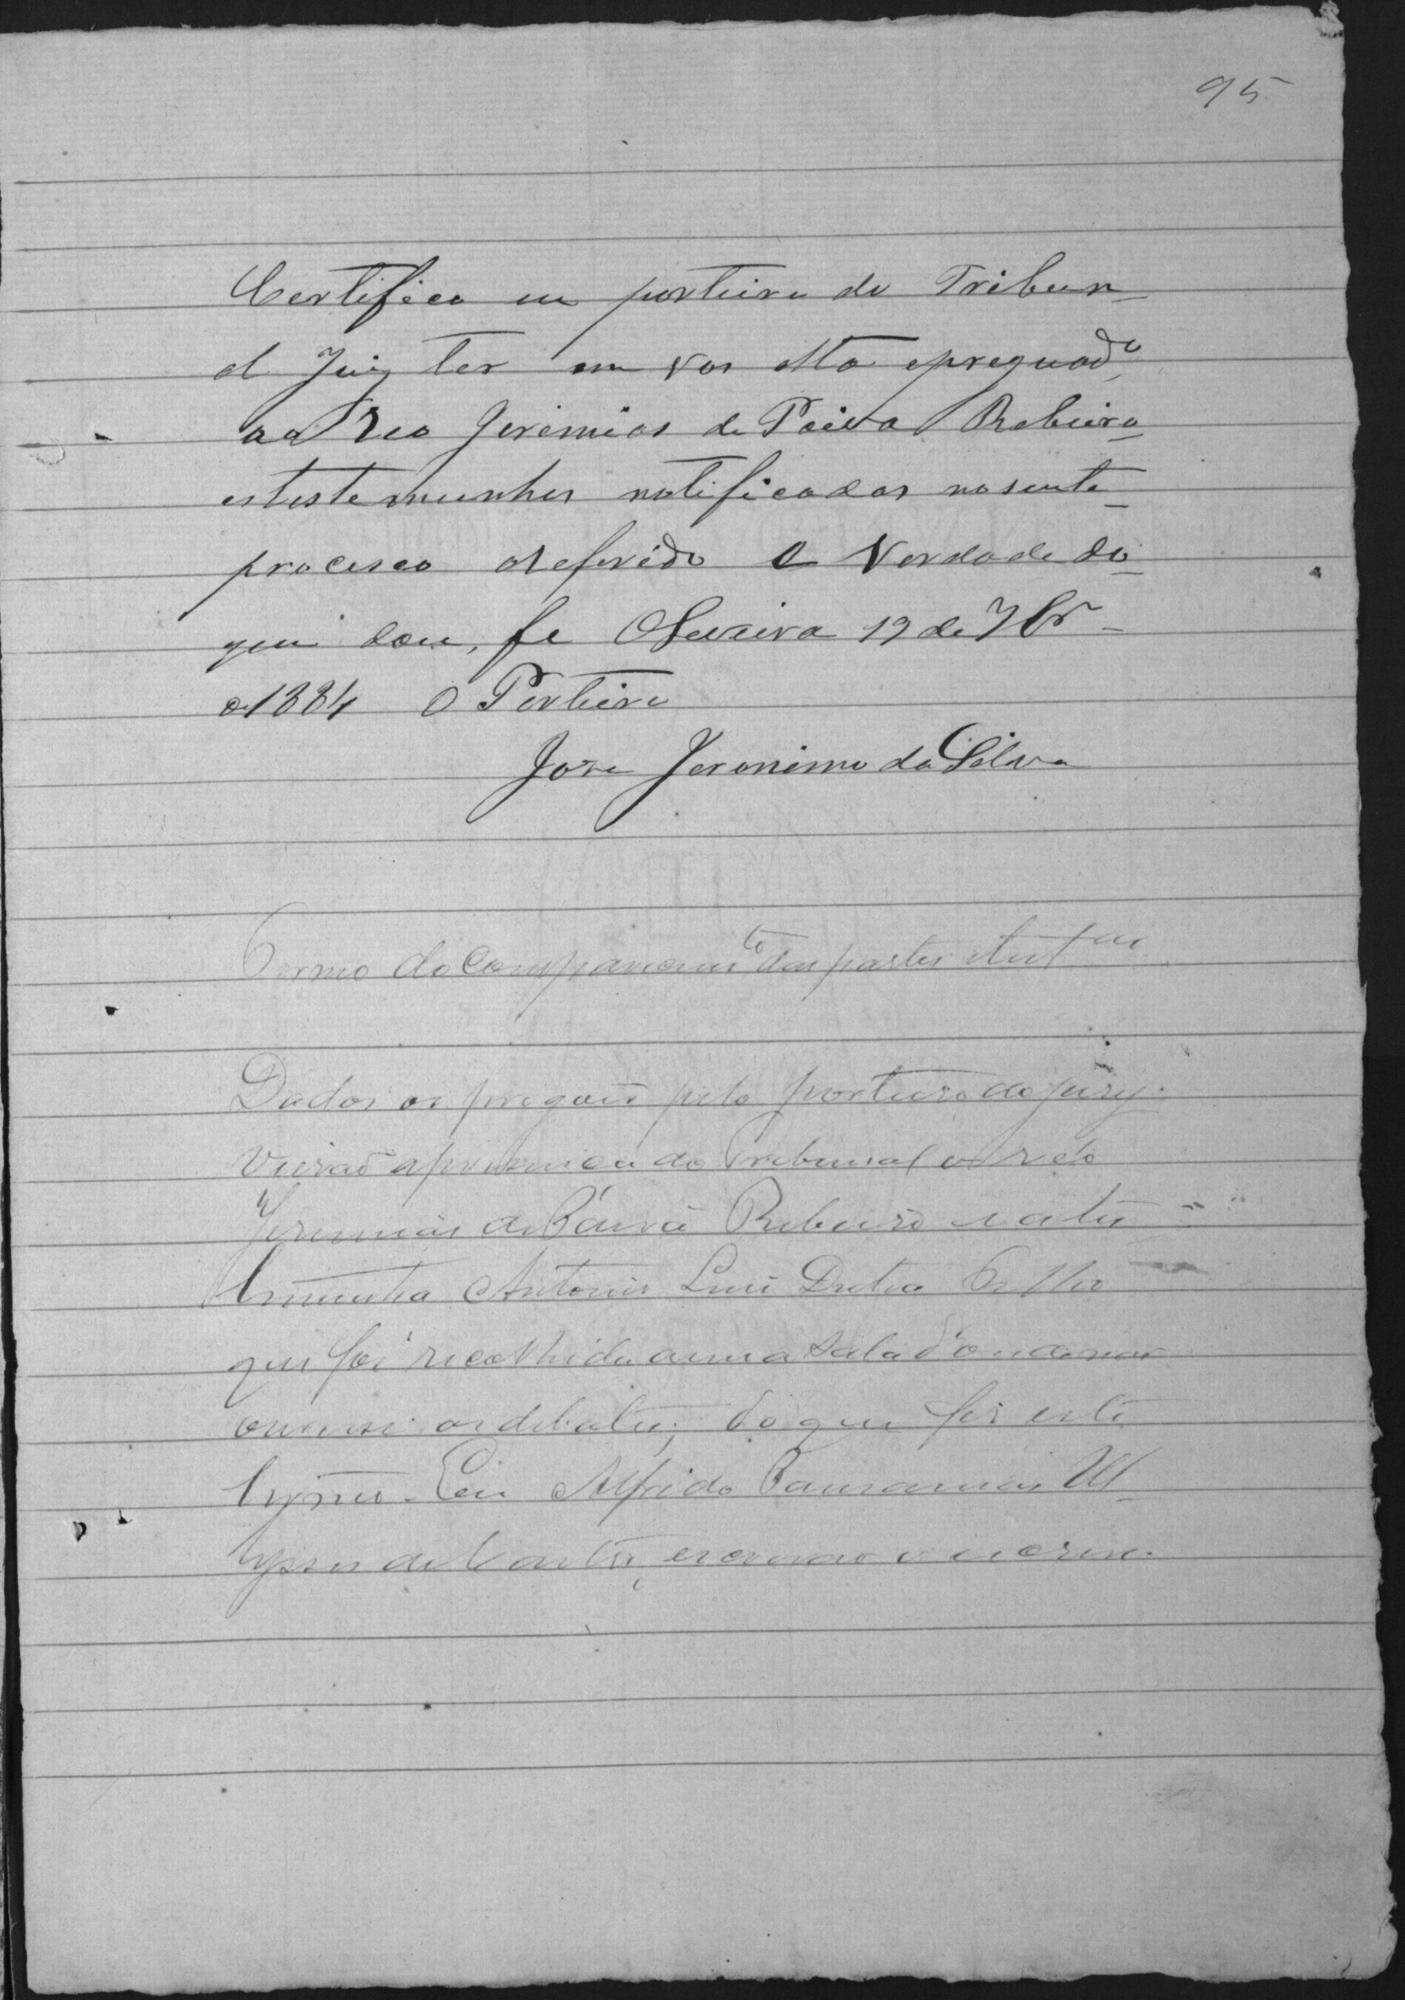 95
Certifico eu porteiro do Tribun-
al Juiz ter em vos alta apreguado
ao Reo Jeremias de Paiva Ribeiro
as testemunhas notificadas no sente
processo o referido e verdade do
que dou fe Oliveira 19 de 7br
de 1884 O Porteiro
Jose Jeronimo da Silva
Termo do Comparecimto das partes e test
Dados os pregoes pelo porteiro do jury.
Vierão a presença do Tribunal o reo
Jeremias de Paiva Ribeiro e a tes
temunha Antonio Luis Dutra
que foi recolhida a uma sala d'onde não
ouvisse os debates; do que fiz este
termo. Eu Alfredo Pausanias Ul-
ysses de Castro, escrivão o escrevi.